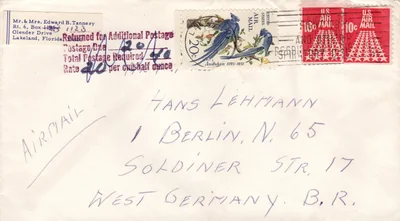 Mr. & Mrs. Edward B. Tannery
Rt. 6, Box
Olender Drive
Lakeland, Florida
Returned for Additional Postage
Postage Due 20/40
Total Postage Required
Rate 20 per one half ounce
AIR MAIL
20c
Audubon 1785-1851
U.S.
AIR MAIL
10c
U.S.
AIR MAIL
10c
AIRMAIL
HANS LEHMANN
1 BERLIN, N. 65
SOLDINER STR. 17
WEST GERMANY. B.R.